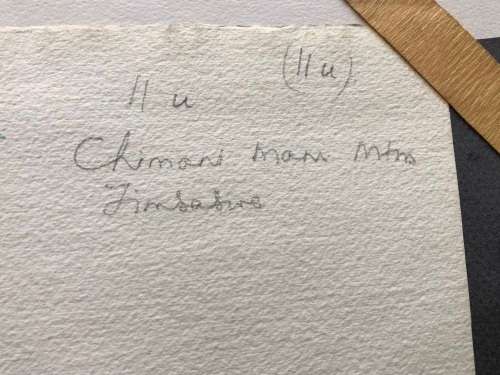 (11 u)
11 u
Chimani mani Mtns
Zimbabwe